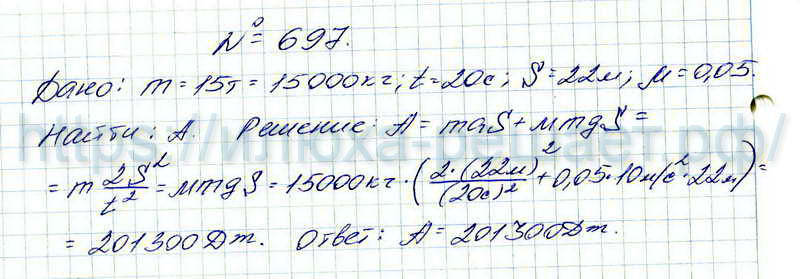 № 697.
Дано: m = 15т = 15000кг; t = 20с; S = 22м; μ = 0,05.
Найти: A. Решение: A = maS + μmgS =
= m 2S²/t² = μmgS = 15000кг · (2·(22м)²/(20с)² + 0,05·10м/с²·22м) =
= 201300Дж. Ответ: A = 201300Дж.